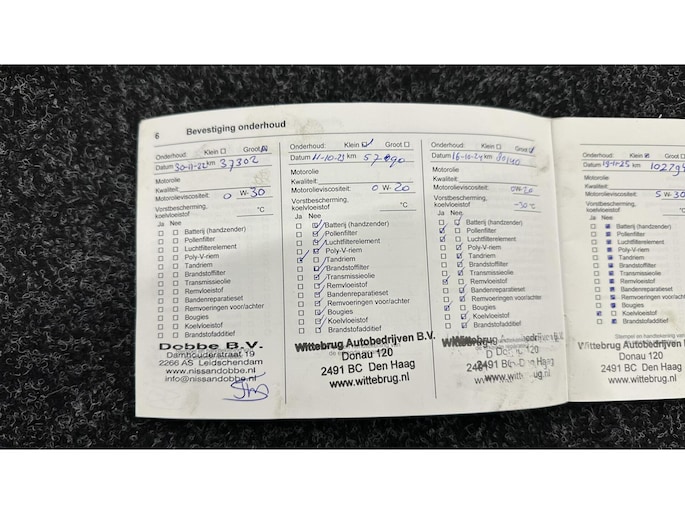 6 Bevestiging onderhoud
Onderhoud: Klein Groot
Datum 30-11-22 km 37302
Motorolie
Kwaliteit:
Motorolieviscositeit: 0 W-30
Vorstbescherming,
koelvloeistof °C
Ja Nee
Batterij (handzender)
Pollenfilter
Luchtfilterelement
Poly-V-riem
Tandriem
Brandstoffilter
Transmissieolie
Remvloeistof
Bandenreparatieset
Remvoeringen voor/achter
Bougies
Koelvloeistof
Brandstofadditief
Dobbe B.V.
Damhouderstraat 19
2266 AS Leidschendam
www.nissandobbe.nl
info@nissandobbe.nl
Onderhoud: Klein Groot
Datum 11-10-23 km
Motorolie
Kwaliteit:
Motorolieviscositeit: 0 W-20
Vorstbescherming,
koelvloeistof °C
Ja Nee
Batterij (handzender)
Pollenfilter
Luchtfilterelement
Poly-V-riem
Tandriem
Brandstoffilter
Transmissieolie
Remvloeistof
Bandenreparatieset
Remvoeringen voor/achter
Bougies
Koelvloeistof
Brandstofadditief
Wittebrug Autobedrijven B.V.
Donau 120
2491 BC Den Haag
www.wittebrug.nl
Onderhoud: Klein Groot
Datum 16-10-24 km
Motorolie
Kwaliteit:
Motorolieviscositeit: 0W-20
Vorstbescherming,
koelvloeistof -30°C
Ja Nee
Batterij (handzender)
Pollenfilter
Luchtfilterelement
Poly-V-riem
Tandriem
Brandstoffilter
Transmissieolie
Remvloeistof
Bandenreparatieset
Remvoeringen voor/achter
Bougies
Koelvloeistof
Brandstofadditief
Onderhoud: Klein
Datum 19-11-25 km 102795
Motorolie
Kwaliteit:
Motorolieviscositeit: 5 W-30
Vorstbescherming,
koelvloeistof
Ja Nee
Batterij (handzender)
Pollenfilter
Luchtfilterelement
Poly-V-riem
Tandriem
Brandstoffilter
Transmissieolie
Remvloeistof
Bandenreparatieset
Remvoeringen voor/achter
Bougies
Koelvloeistof
Brandstofadditief
Wittebrug Autobedrijven
Donau 120
2491 BC Den Haag
www.wittebrug.nl